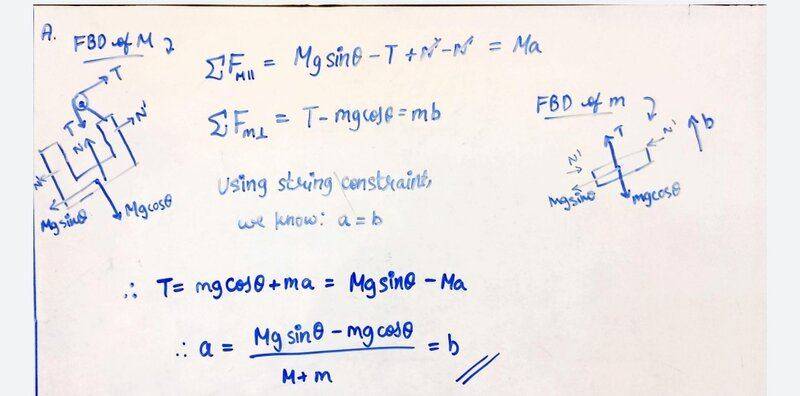 A.
FBD of M
T
T
N'
N
N'
Mg sinθ
Mg cosθ
ΣF_M∥ = Mg sinθ - T + N' - N' = Ma
ΣF_m⊥ = T - mg cosθ = mb
Using string constraint,
we know: a = b
FBD of m
T
N'
N'
b
Mg sinθ
mg cosθ
∴ T = mg cosθ + ma = Mg sinθ - Ma
∴ a = (Mg sinθ - mg cosθ) / (M + m) = b